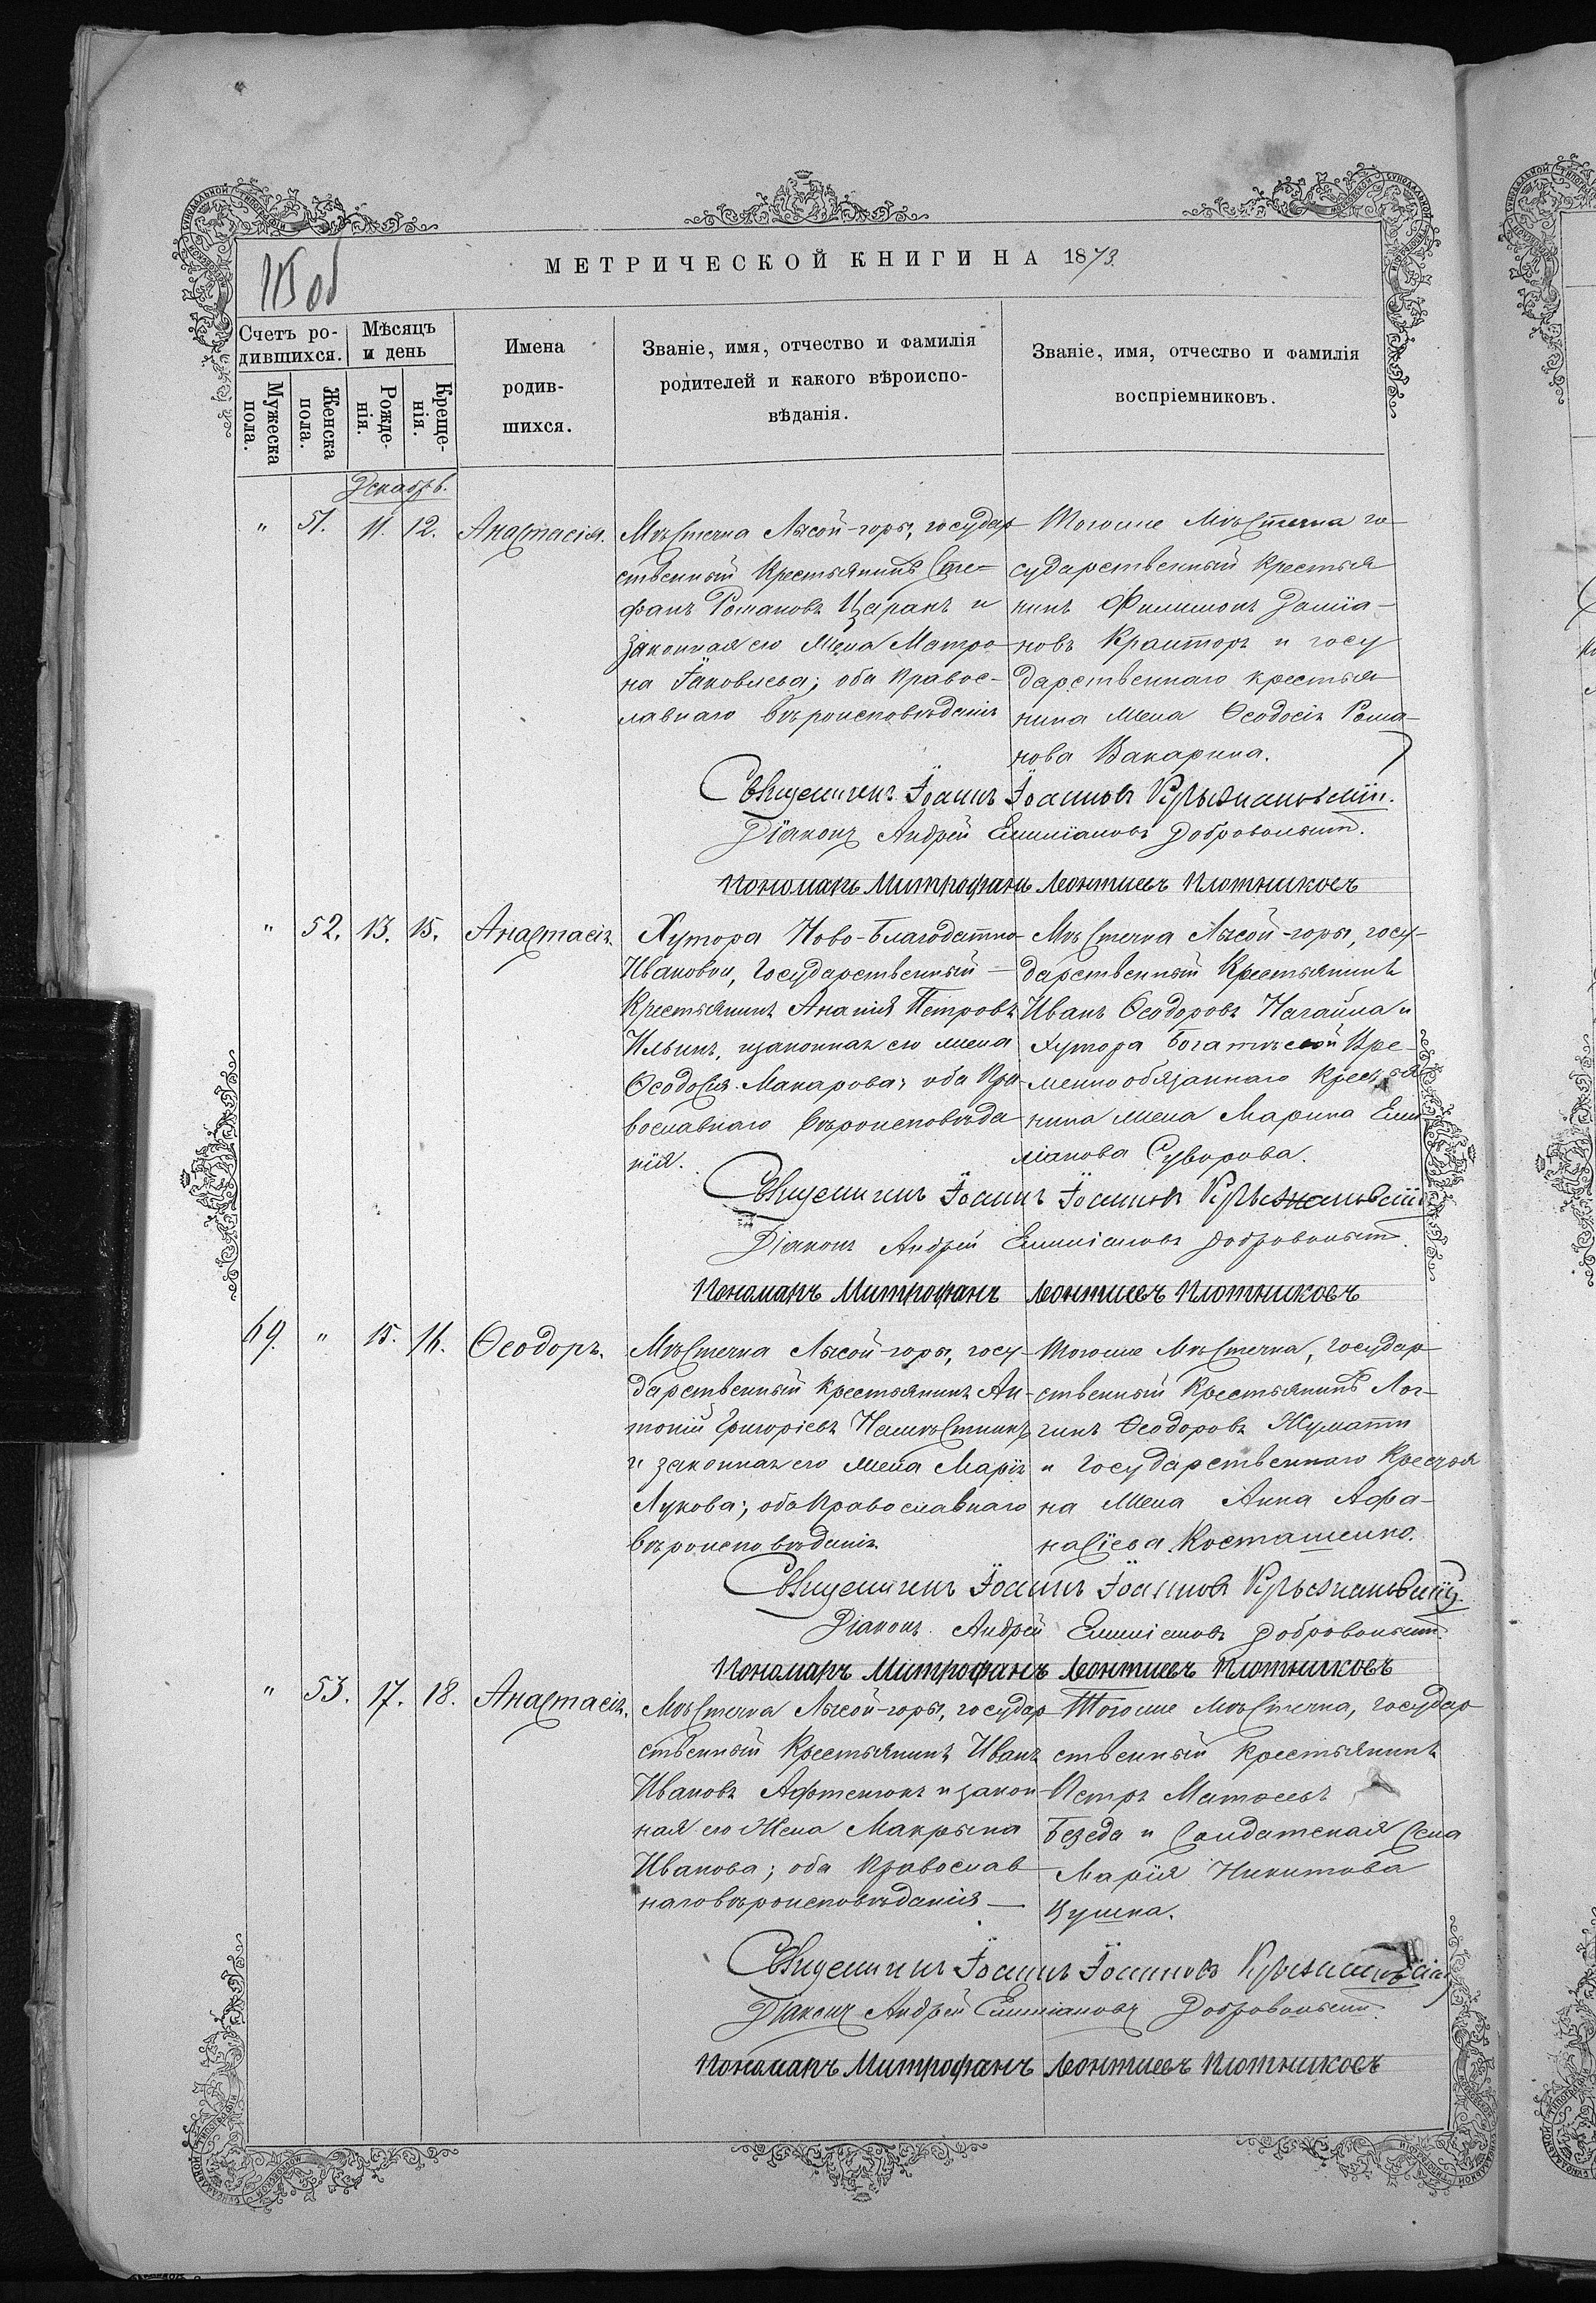 МЕТРИЧЕСКОЙ КНИГИ НА 1873.
115 об
Счетъ ро-
дившихся.
Мѣсяцъ
и день
Мужеска
пола.
Женска
пола.
Рожде-
нія.
Креще-
нія.
Имена
родив-
шихся.
Званіе, имя, отчество и фамилія
родителей и какого вѣроиспо-
вѣданія.
Званіе, имя, отчество и фамилія
воспріемниковъ.
Декабрь.
" 51. 11. 12. Анастасія.
Мѣстечка Лысой-горы, государ-
ственный Крестьянинъ Сте-
фанъ Романовъ Царанъ и
законная его жена Матро-
на Іаковлева; оба Правос-
лавнаго Вѣроисповѣданія
Тогоже Мѣстечка го-
сударственный Крестья-
нинъ Филимонъ Даміа-
новъ и госу
дарственнаго крестья-
нина жена Ѳеодосія Рома-
нова Вакарина.
Священникъ Іоаннъ Іоанновъ Крыжановскій.
Діаконъ Андрей Емиліановъ Добровольскій.
Пономарь Митрофанъ Леонтіевъ Плотниковъ
" 52. 13. 15. Анастасія.
Хутора Ново-Благодатно-
Ивановки, Государственный
Крестьянинъ Ананія Петровъ
Ильинъ, изаконная его жена
Ѳеодосія Макарова; оба Пра-
вославнаго Вѣроисповѣда
нія.
Мѣстечка Лысой-горы, госу-
дарственный Крестьянинъ
Иванъ Ѳеодоровъ и
Хутора Вре-
меннообязаннаго Крестья
нина жена Марина Еми
ліанова Суворова.
Священникъ Іоаннъ Іоанновъ Крыжановскій
Діаконъ Андрей Емиліановъ Добровольскій.
Пономарь Митрофанъ Леонтіевъ Плотниковъ
69. " 15. 16. Ѳеодоръ.
Мѣстечка Лысой-горы, госу-
дарственный Крестьянинъ Ан-
тоній Григоріевъ Намѣстникъ
и законная его жена Марія
Лукова; оба Православнаго
вѣроисповѣданія.
Тогоже Мѣстечка, государ-
ственный Крестьянинъ Лог-
гинъ Ѳеодоровъ
и Государственнаго Крестья
на жена Анна Афа-
насіева Косташенко.
Священникъ Іоаннъ Іоанновъ Крыжановскій.
Діаконъ Андрей Емиліановъ Добровольскій.
Пономарь Митрофанъ Леонтіевъ Плотниковъ
" 53. 17. 18. Анастасія.
Мѣстечка Лысой-горы, государ-
ственный Крестьянинъ Иванъ
Ивановъ и закон
ная его Жена Макрына
Иванова; оба Православ
наго вѣроисповѣданія —
Тогоже Мѣстечка, государ
ственный крестьянинъ
Петръ
Безеда и Солдатская
Марія Никитова
Священникъ Іоаннъ Іоанновъ Крыжановскій
Діаконъ Андрей Емиліановъ Добровольскій.
Пономарь Митрофанъ Леонтіевъ Плотниковъ